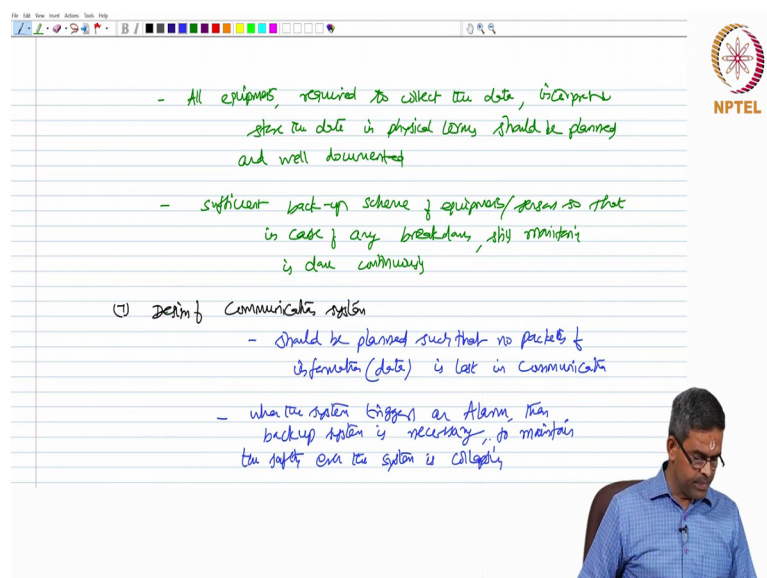 File Edit View Insert Actions Tools Help
B I
NPTEL
- All equipments, required to collect the data, interpret &
store the data in physical terms should be planned
and well documented
- sufficient back-up scheme of equipments/sensors so that
in case of any breakdown, still monitoring
is done continuously
(7) Design of Communication system
- should be planned such that no packets of
information (data) is lost in communication
- when the system triggers an Alarm, then
backup system is necessary, to maintain
the safety even the system is collapsing